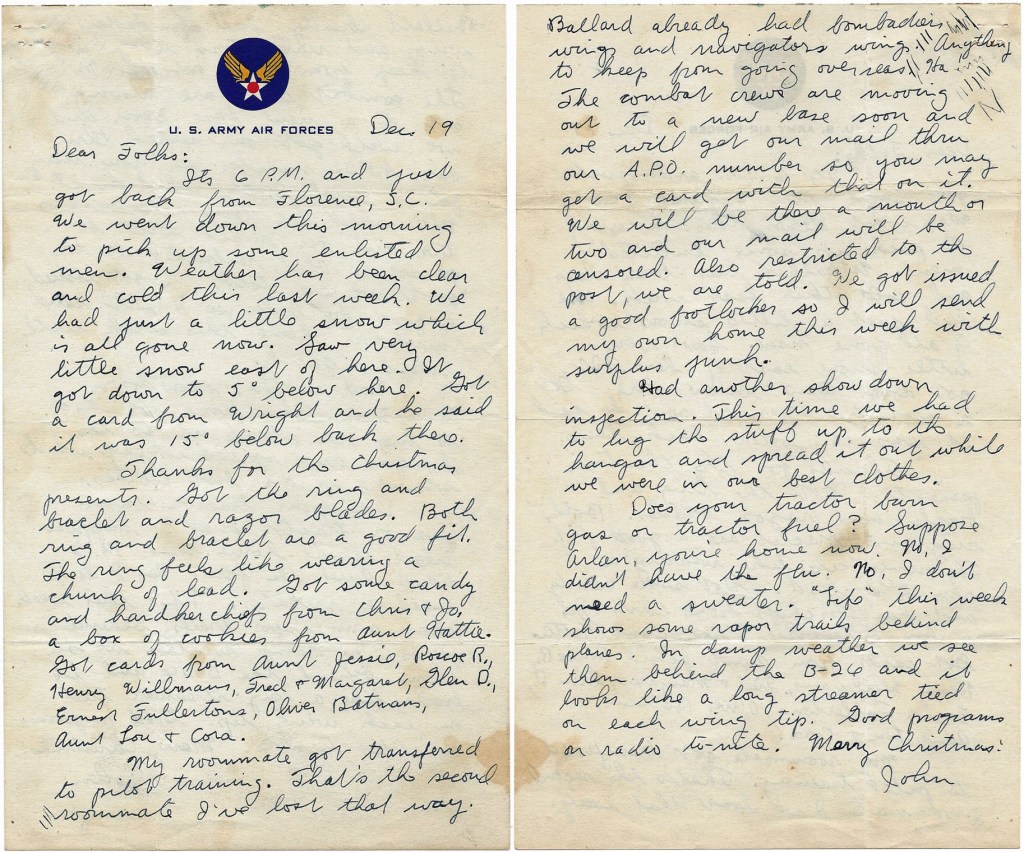 U. S. ARMY AIR FORCES
Dec. 19
Dear Folks:
Its 6 P.M. and just
got back from Florence, S.C.
We went down this morning
to pick up some enlisted
men. Weather has been clear
and cold this last week. We
had just a little snow which
is all gone now. Saw very
little snow east of here. It
got down to 5° below here. Got
a card from Wright and he said
it was 15° below back there.
Thanks for the Christmas
presents. Got the ring and
braclet and razor blades. Both
ring and braclet are a good fit.
The ring feels like wearing a
chunk of lead. Got some candy
and hardkerchiefs from Chris & Jo,
a box of cookies from Aunt Hattie.
Got cards from Aunt Jessie, Roscoe R.,
Henry Willmans, Fred & Margaret, Glen D.,
Ernest Fullertons, Oliver Batmans,
Aunt Lou & Cora.
My roommate got transferred
to pilot training. That's the second
roommate I've lost that way.
Ballard already had bombadiers
wings and navigators wings. Anything
to keep from going overseas. Ha
The combat crews are moving
out to a new base soon and
we will get our mail thru
our A.P.O. number so you may
get a card with that on it.
We will be there a month or
two and our mail will be
censored. Also restricted to the
post, we are told. We got issued
a good footlocker so I will send
my own home this week with
surplus junk.
Had another show down
inspection. This time we had
to lug the stuff up to the
hangar and spread it out while
we were in our best clothes.
Does your tractor burn
gas or tractor fuel? Suppose
Arlan, you're home now. No, I
didn't have the flu. No, I don't
need a sweater. "Life" this week
shows some vapor trails behind
planes. In damp weather we see
them behind the B-26 and it
looks like a long streamer tied
on each wing tip. Good programs
on radio to-nite. Merry Christmas:
John